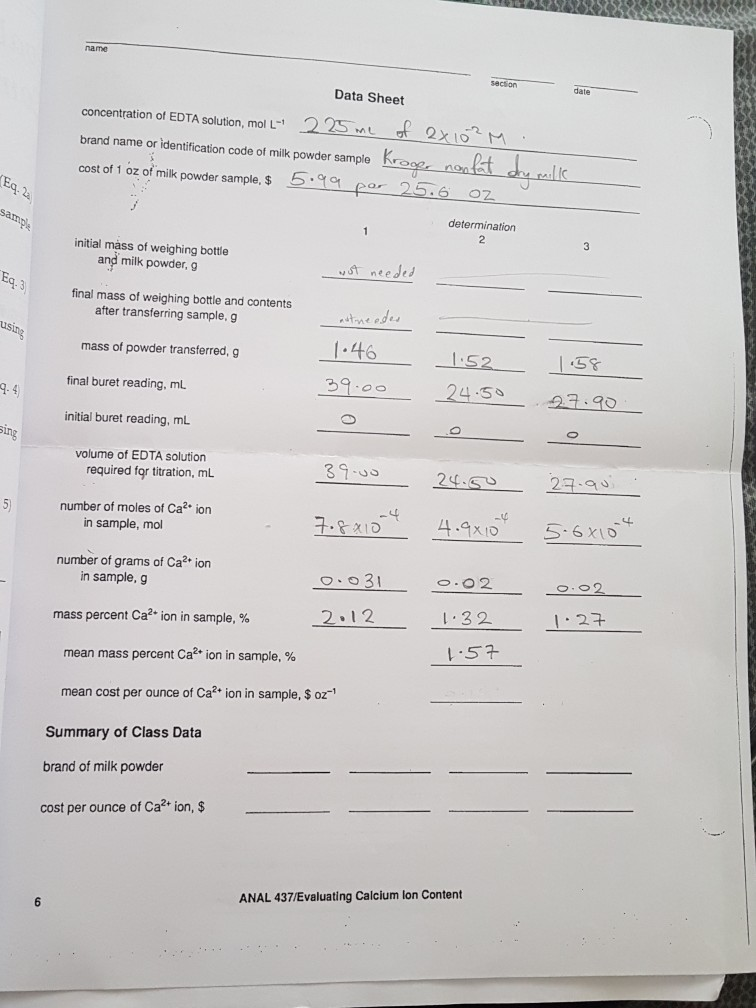 name
section
date
Data Sheet
concentration of EDTA solution, mol L⁻¹ 225 mL of 2x10⁻² M.
brand name or identification code of milk powder sample Kroger nonfat dry milk
cost of 1 oz of milk powder sample, $ 5.99 par 25.6 oz
(Eq. 2a)
sample
determination
1 2 3
initial mass of weighing bottle
and milk powder, g not needed
Eq. 3)
final mass of weighing bottle and contents
after transferring sample, g not needed
using
mass of powder transferred, g 1.46 1.52 1.58
q. 4)
final buret reading, mL 39.00 24.50 27.90
sing
initial buret reading, mL 0 0 0
volume of EDTA solution
required for titration, mL 39.00 24.50 27.90
5)
number of moles of Ca²⁺ ion
in sample, mol 7.8x10⁻⁴ 4.9x10⁻⁴ 5.6x10⁻⁴
number of grams of Ca²⁺ ion
in sample, g 0.031 0.02 0.02
mass percent Ca²⁺ ion in sample, % 2.12 1.32 1.27
mean mass percent Ca²⁺ ion in sample, % 1.57
mean cost per ounce of Ca²⁺ ion in sample, $ oz⁻¹
Summary of Class Data
brand of milk powder
cost per ounce of Ca²⁺ ion, $
6 ANAL 437/Evaluating Calcium Ion Content